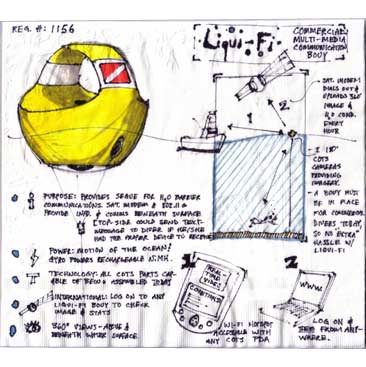 REG. #: 1156
Liqui-Fi
COMMERCIAL
MULTI-MEDIA
COMMUNICATION
BODY
SAT. MODEM
DIALS OUT &
UPLOADS 360°
IMAGE &
H2O COND.
EVERY
HOUR
1
2
2 180°
COTS
CAMERAS
PROVIDING
IMAGERY.
A BUOY MUST
BE IN PLACE
FOR COMMERCIAL
DIVERS TODAY,
SO NO EXTRA
HASSLE W/
LIQUI-FI
PURPOSE: PROVIDES SERVE FOR H2O BARRIER
COMMUNICATIONS. SAT. MODEM & 802.11
PROVIDE INFO. & COMMS BENEATH SURFACE
(TOP-SIDE COULD SEND TEXT-
MESSAGE TO DIVER IF HE/SHE
HAD THE PROPER DEVICE TO RECEIVE
POWER: MOTION OF THE OCEAN!
GYRO POWERS RECHARGEABLE NI.MH.
TECHNOLOGY: ALL COTS PARTS CAP-
ABLE OF BEING ASSEMBLED TODAY
INTERNATIONAL: LOG ON TO ANY
LIQUI-FI BODY TO CHECK
IMAGE & STATS
360° VIEWS - ABOVE &
BENEATH WATER SURFACE.
1.
REAL
TIME
VIDEO
CONDITIONS
WI-FI HOTSPOT
ACCESSIBLE WITH
ANY COTS PDA
2.
WWW
LOG ON &
SEE FROM ANY-
WHERE.